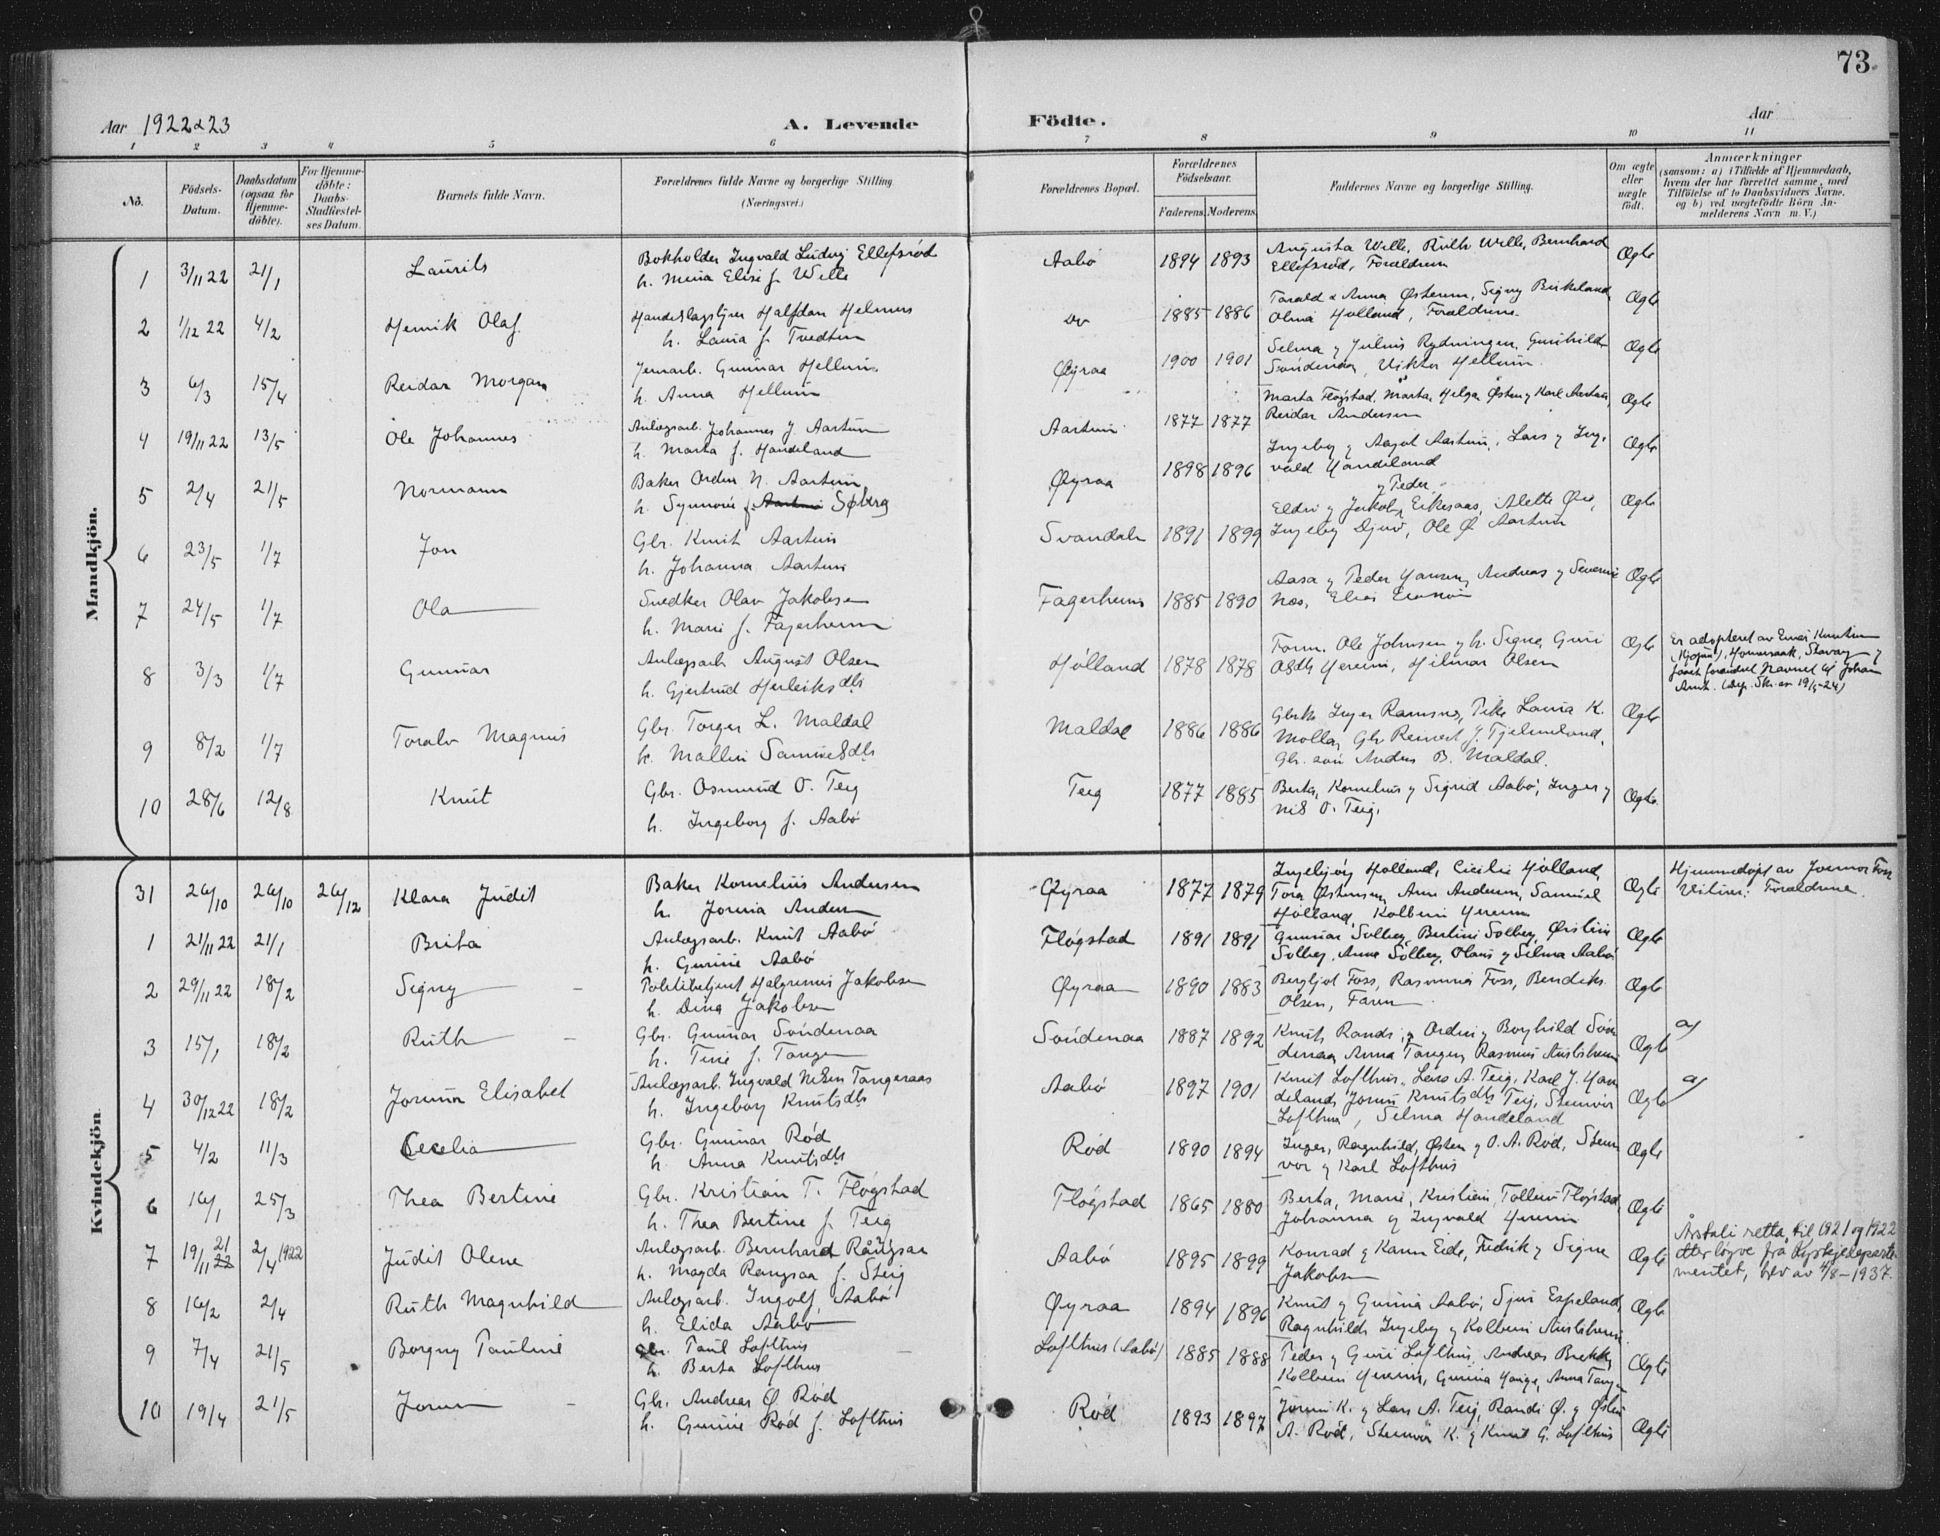 73.
Aar 1922 & 23
A. Levende Födte.
Aar
1 2 3 4 5 6 7 8 9 10 11
No. Födsels-Datum. Daabsdatum (ogsaa for Hjemme-döbte). For Hjemme-döbte: Daabs-Stadfæstel-ses Datum. Barnets fulde Navn. Forældrenes fulde Navne og borgerlige Stilling. (Næringsvei.) Forældrenes Bopæl. Forældrenes Födselsaar. Faderens. Moderens. Faddernes Navne og borgerlige Stilling. Om ægte eller uægte födt. Anmærkninger (saasom: a) i Tilfælde af Hjemmedaab, hvem der har forrettet samme, med Tilföielse af to Daabsvidners Navne, og b) ved uægtefödte Börn An-melderens Navn m. V.)
Mandkjön.
1 3/11 22 21/1 Laurits Bokholder Ingvald Ludvig Ellefsrød Aabø 1894 1893 Augusta Wille, Ruth Wille, Bernhard Ægte
h. Mina Elise f. Wille Ellefsrød, Forældrene
2 1/12 22 4/2 Henrik Olaf Halfdan Helmers Do 1885 1886 Torald & Anna Østerem, Signy Birkeland, Ægte
h. Laura f. Tvedten Olma Hølland, Forældrene.
3 6/3 15/4 Reidar Morgan Jernarb. Gunnar Hellum Øyraa 1900 1901 Selma & Julius Rydningen, Gunhild Ægte
h. Anna Hellum Søndenaa, Viktor Hellum.
4 19/11 22 13/5 Ole Johannes Anlægsarb. Johannes J Aartun Aartun 1877 1877 Marta Fløgstad, Marta, Helga, Østen & Karl Aartun, Ægte
h. Marta f. Handeland Reidar Andersen
5 2/4 21/5 Normann Baker Orden N. Aartun Øyraa 1898 1896 Ingeborg & Aagot Aartun, Lars & Ing- Ægte
h. Synnøve f. Aartun Søberg vald Handeland
6 23/5 1/7 Jon Gbr. Knut Aartun Svandal 1891 1899 Eldri & Jakob & Peder Eikesaas, Alette Øie, Ægte
h. Johanna Aartun Ingeborg Djuv, Ole Ø Aartun
7 24/5 1/7 Ola Snedker Olav Jakobsen Fagerheim 1885 1890 Aasa & Peder Hansen, Andreas & Severine Ægte
h. Marie f. Fagerheim Næs,
8 3/3 1/7 Gunnar Anlægsarb August Olsen Hølland 1878 1878 Form. Ole Johnsen & h. Signe, Guri Ægte
h. Gjertrud Herleiksdtr Hereim, Hilmar Olsen
Er adopteret av Knutsen
Stavanger &
faaet forandret Navnet til Johan
(Dep. Skr. av 19/5-24)
9 8/2 1/7 Toralv Magnus Gbr. Torger L. Maldal Maldal 1886 1886 Gbrk Inger Ramsnes, Pike Laura K. Ægte
h. Mallin Samuelsdtr Mollan, Gbr Reinert J. Tjelmeland,
Gbr. søn Andres B. Maldal.
10 28/6 12/8 Knut Gbr. Osmund O. Teig Teig 1877 1885 Berta, Kornelius & Sigrid Aabø, Inger & Ægte
h. Ingeborg f. Aabø Nils O. Teig.
Kvindekjön
31 26/10 26/10 26/12 Klara Judit Baker Kornelius Andersen Øyraa 1877 1879 Ingebjørg Hølland, Cecilie Hølland, Ægte Hjemmedøpt av Jormor Foss
h. Jorina Andersen Tora Østensen, Ann Andersen, Samuel Vitner: Forældrene.
Hølland, Kolbein Hereim
1 21/11 22 21/1 Brita Anlægsarb. Knut Aabø Fløgstad 1891 1891 Gunnar Solberg, Bertine Solberg, Ørsline Ægte
h. Gurine Aabø Solberg, Anne Solberg, Olaus & Selma Aabø
2 29/11 22 18/2 Signy Politibetjent Halgrimus Jakobsen Øyraa 1890 1883 Bergljot Foss, Rasmina Foss, Bendik Ægte
h. Dina Jakobsen Olsen, Faren
3 15/1 18/2 Ruth Gbr. Gunnar Søndenaa Søndenaa 1887 1892 Knut, Randi, & Ordin & Borghild Søn Ægte a)
h. Tine f. Tangen denaa, Anna Tangen, Rasmus Austarheim
4 30/12 22 18/2 Jorunn Elisabet Anlægsarb. Ingvald Nilsen Tangeraas Aabø 1897 1901 Knut Lofthus, Lars A. Teig, Karl J. Han Ægte a)
h. Ingeborg Knutsdtr deland, Jorun Knutsdtr Teig, Steinvør
Lofthus, Selma Handeland
5 4/2 11/3 Cecelia Gbr. Gunnar Rød Rød 1890 1894 Inger, Ragnhild, Østen & O. A. Rød, Stein Ægte
h. Anna Knutsdtr vor & Karl Lofthus
6 16/1 25/3 Thea Bertine Gbr. Kristian T. Fløgstad Fløgstad 1865 1880 Berta, Marie, Kristian, Tollein Fløgstad, Ægte
h. Thea Bertine f. Teig Johanna & Ingvald Hereim
7 19/11 21 22 2/4 1922 Judit Olene Anlægsarb. Bernhard Rangsaa Aabø 1895 1899 Konrad & Karen Eide, Fredrik & Signe Ægte
h. Magda Rangsaa f. Steig Jakobsen
Årstali retta til 1921 og 1922
etter løyve frå Kyrkjedeparte-
mentet, brev av 4/8-1937.
8 16/2 2/4 Ruth Magnhild Anlægsarb. Ingolf Aabø Øyraa 1894 1896 Knut & Gurina Aabø, Sjur Espeland, Ægte
h. Elida Aabø Ragnhild, Ingeborg & Kolbein Austarheim
9 7/4 21/5 Borgny Pauline Gbr. Paul Lofthus Lofthus (Aabø) 1885 1888 Peder & Guri Lofthus, Andreas Brekke, Ægte
h. Berta Lofthus Kolbein Hereim, Gurina Hauge, Anna Tangen
10 19/4 21/5 Jorun Gbr. Andreas Ø. Rød Rød 1893 1897 Jorun K. & Lars A. Teig, Randi Ø. & Østen Ægte
h. Gurine Rød f. Lofthus A. Rød, Steinvør K. & Knut G. Lofthus